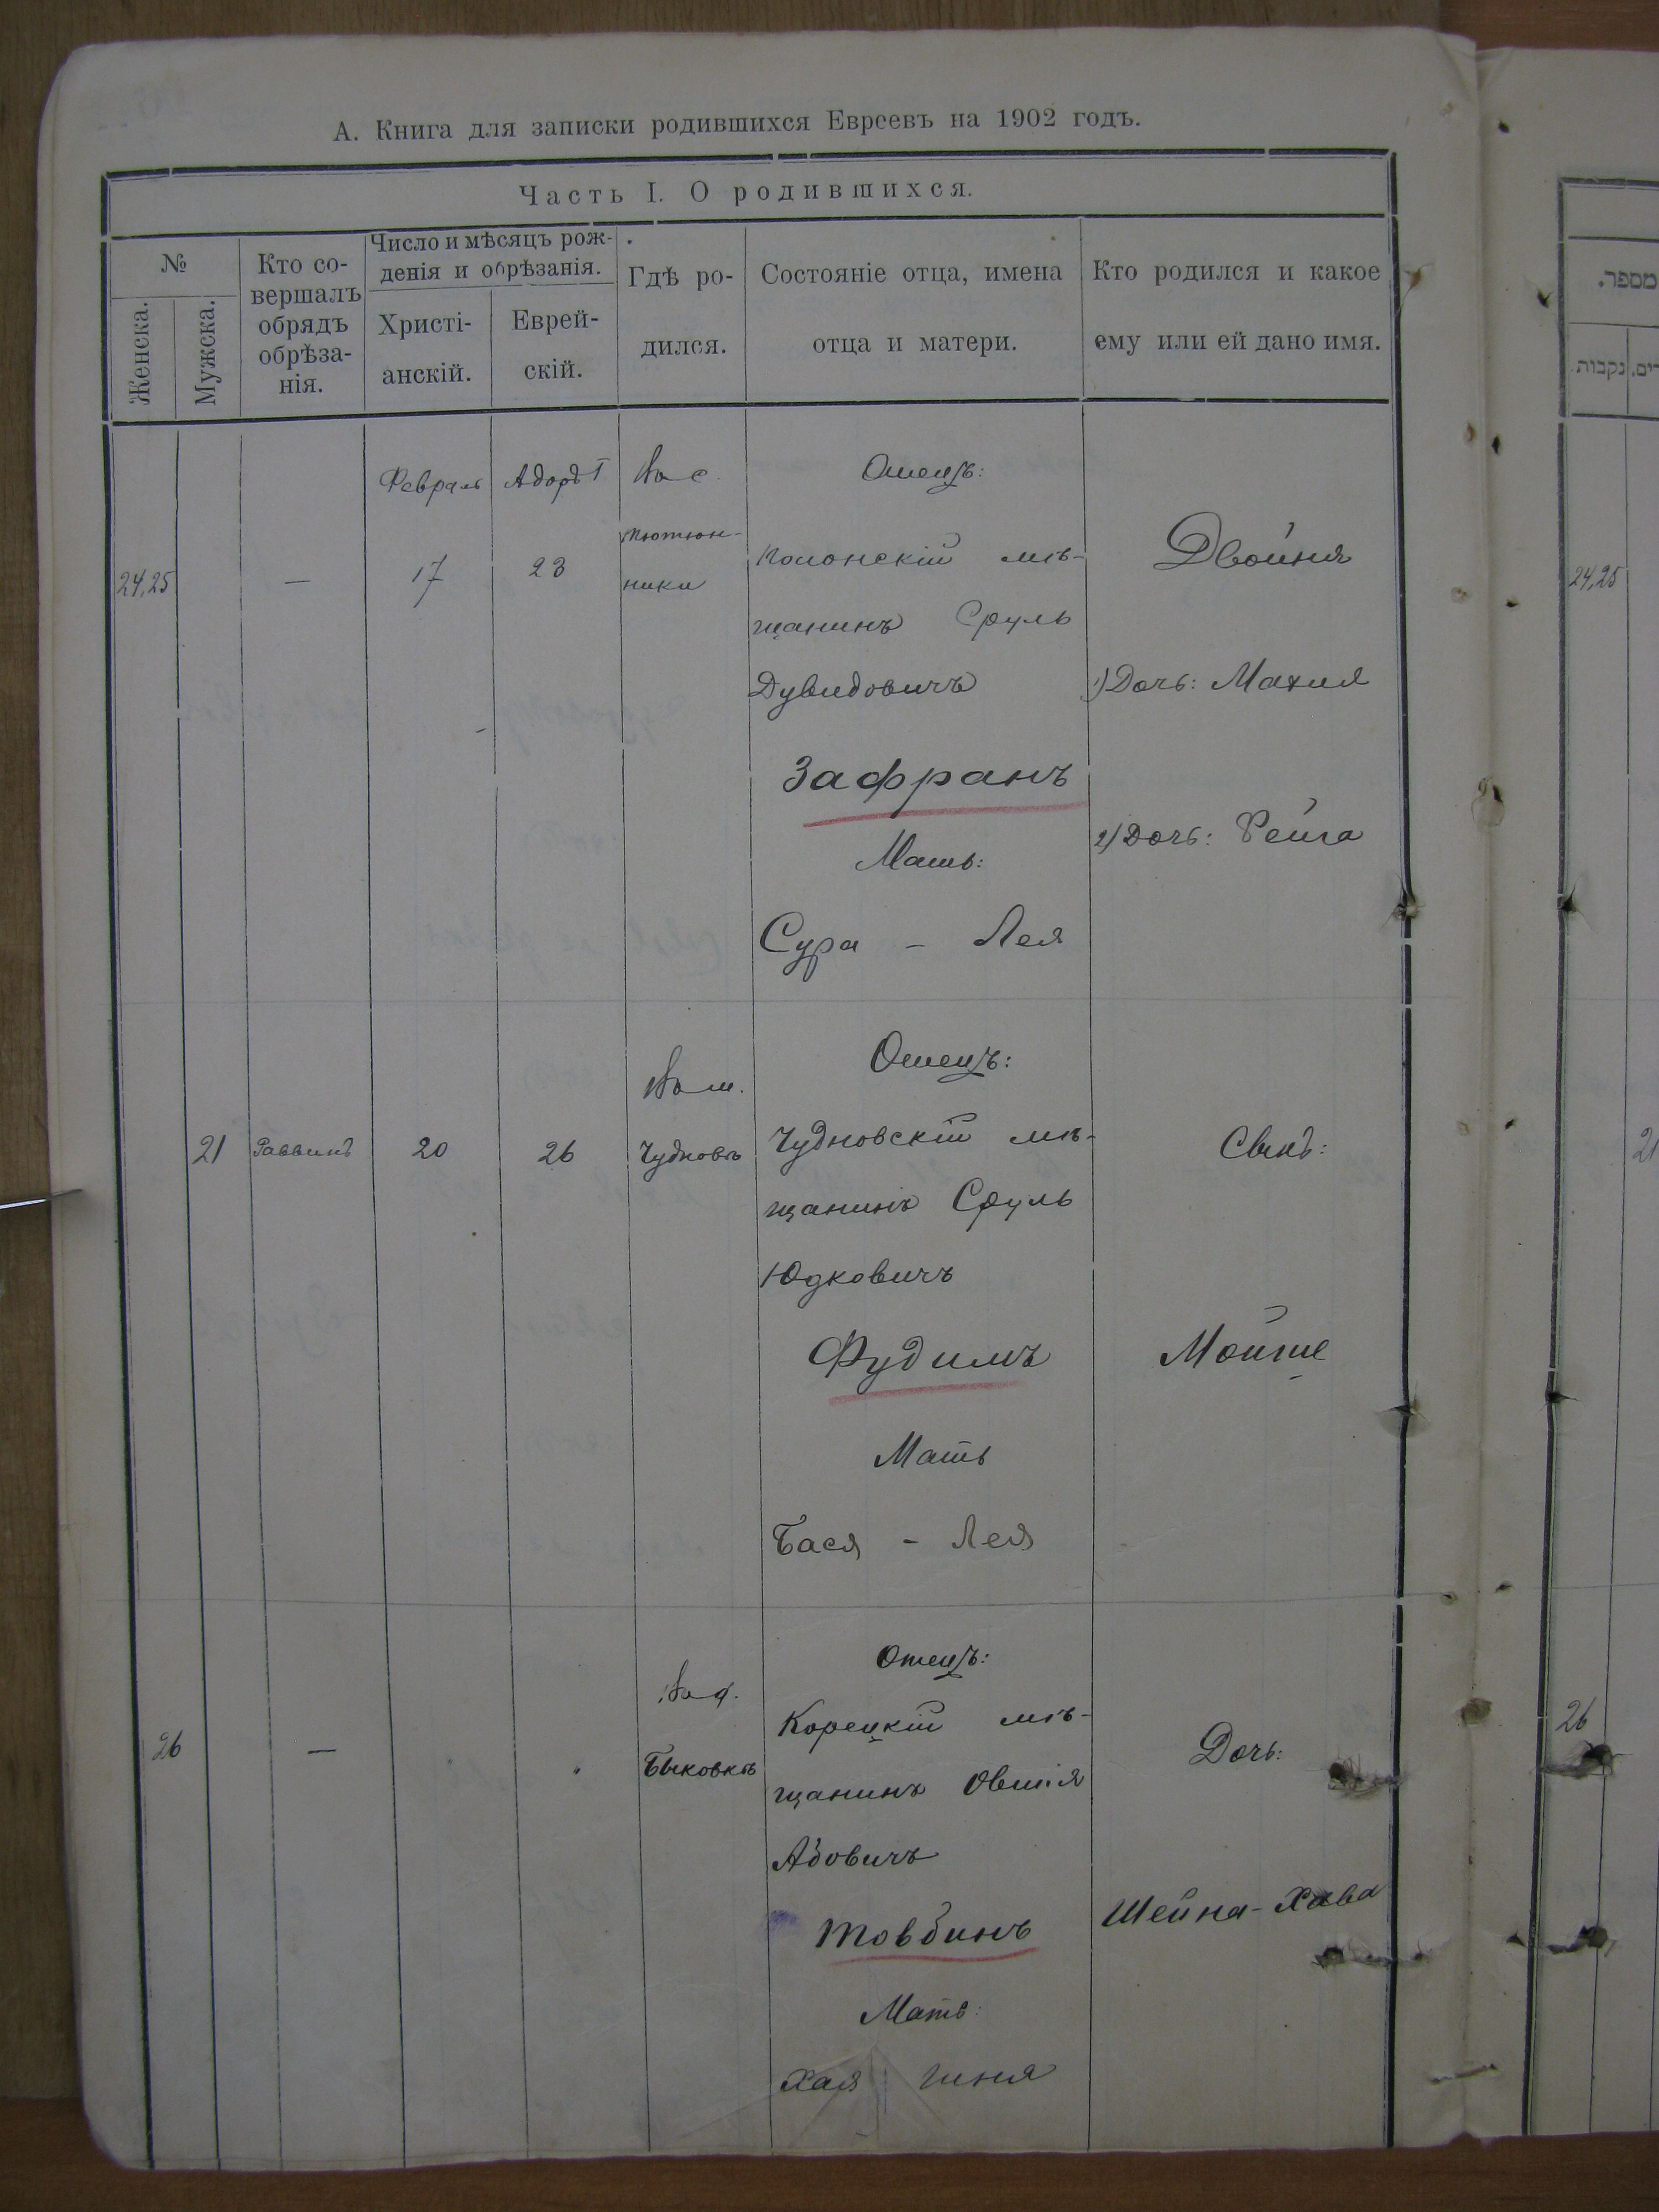 А. Книга для записки родившихся Евреевъ на 1902 годъ.
Часть I. О родившихся.
№
Женска.
Мужска.
Кто со-
вершалъ
обрядъ
обрѣза-
нія.
Число и мѣсяцъ рож-
денія и обрѣзанія.
Христі-
анскій.
Еврей-
скій.
Гдѣ ро-
дился.
Состояніе отца, имена
отца и матери.
Кто родился и какое
ему или ей дано имя.
24,25
—
Февраль
17
Адоръ I
23
Въ с.
Тютюн-
ники
Отецъ:
Полонскій мѣ-
щанинъ Сруль
Дувидовичъ
Зафранъ
Мать:
Сура - Лея
Двойня
1) Дочь: Махля
2) Дочь: Фейга
21
Раввинъ
20
26
Въ м.
Чудновѣ
Отецъ:
Чудновскій мѣ-
щанинъ Сруль
Юдковичъ
Фудимъ
Мать
Бася - Лея
Сынъ:
Мойше
26
—
Быковкѣ
Отецъ:
Корецкій мѣ-
щанинъ Овшія
Абовичъ
Товбинъ
Мать:
Хая
Дочь:
Шейна-Хава
מספר.
נקבות
24,25
21
26